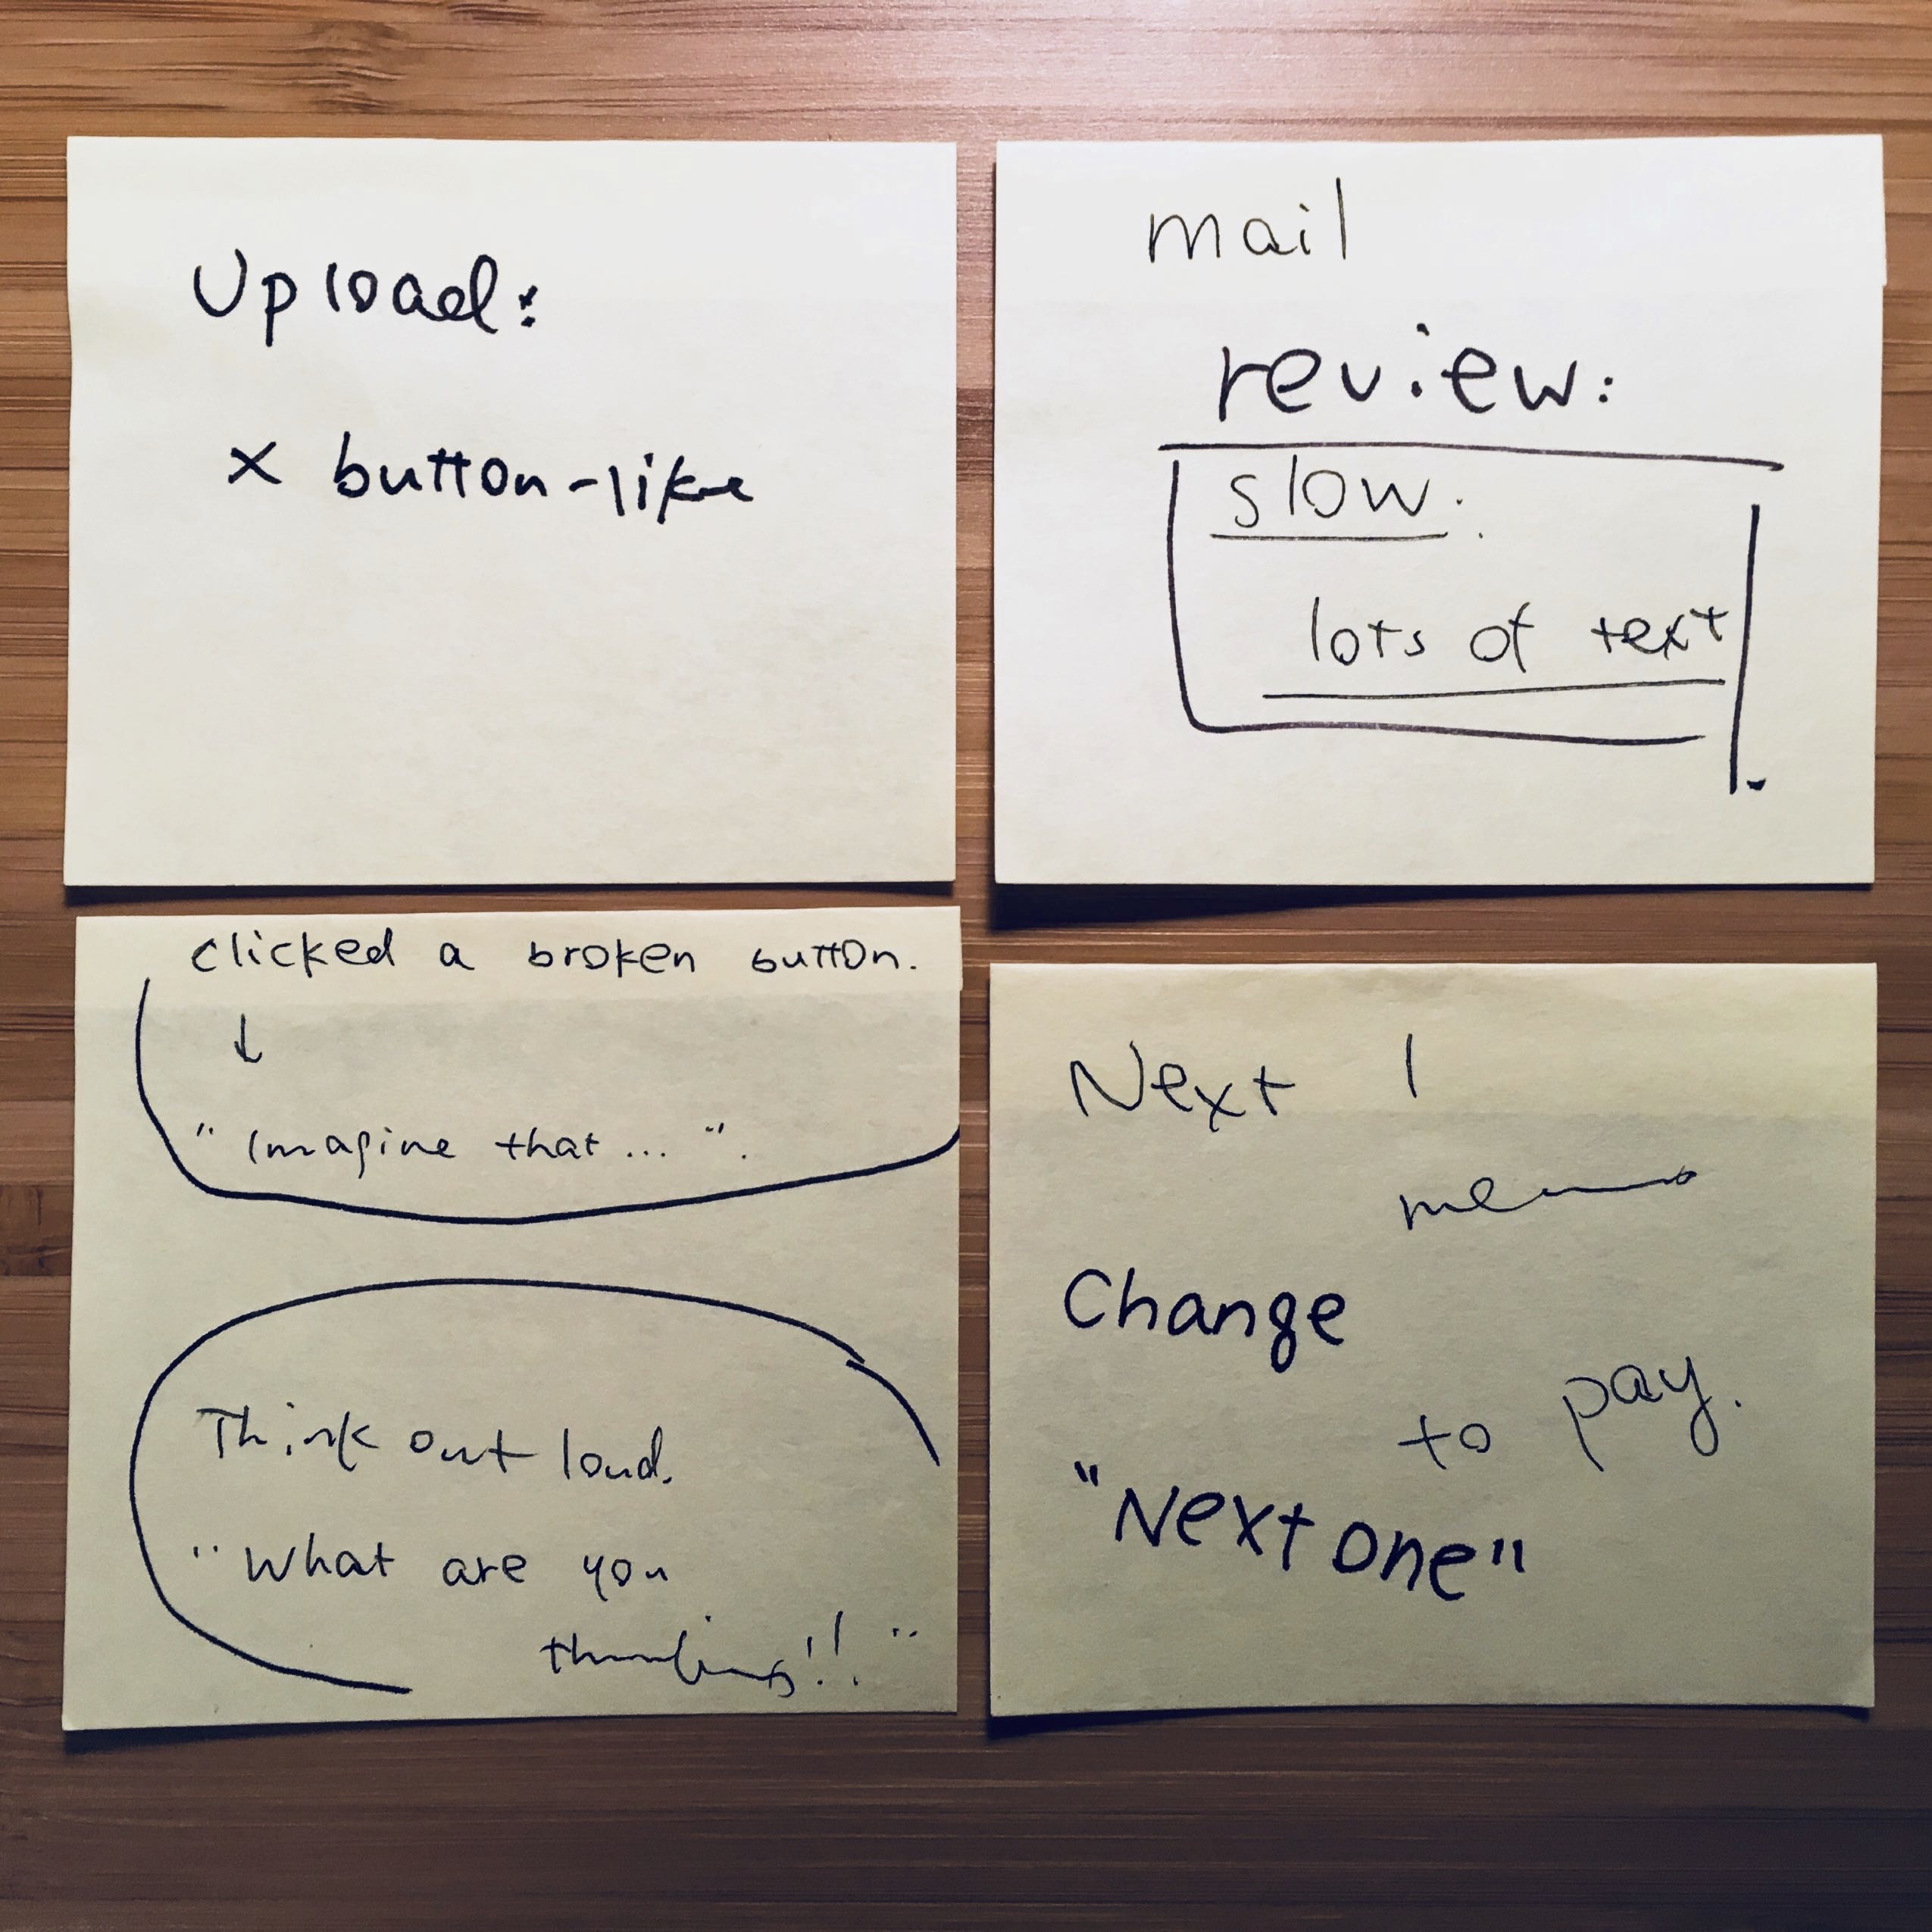 Upload:
× button-like
mail
review:
slow:
lots of text
clicked a broken button.
↓
"Imagine that... ".
Think out loud.
"What are you
thinking!!"
Next |
Change
to pay.
"Next one"